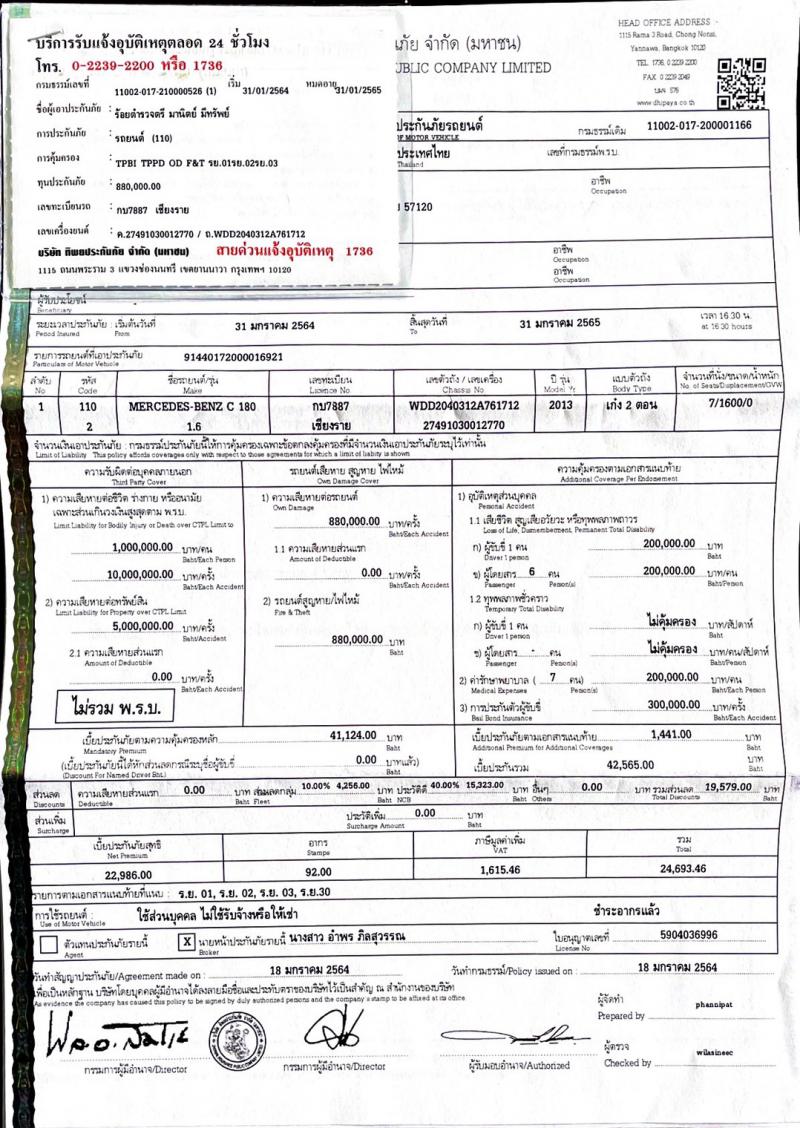 บริการรับแจ้งอุบัติเหตุตลอด 24 ชั่วโมง
โทร. 0-2239-2200 หรือ 1736
กรมธรรม์เลขที่ 11002-017-210000526 (1) เริ่ม 31/01/2564 หมดอายุ 31/01/2565
ชื่อผู้เอาประกันภัย : ร้อยตำรวจตรี มานิตย์ มีทรัพย์
การประกันภัย : รถยนต์ (110)
การคุ้มครอง : TPBI TPPD OD F&T รย.01รย.02รย.03
ทุนประกันภัย : 880,000.00
เลขทะเบียนรถ : กบ7887 เชียงราย
เลขเครื่องยนต์ : ค.27491030012770 / ถ.WDD2040312A761712
บริษัท ทิพยประกันภัย จำกัด (มหาชน) สายด่วนแจ้งอุบัติเหตุ 1736
1115 ถนนพระราม 3 แขวงช่องนนทรี เขตยานนาวา กรุงเทพฯ 10120
ภัย จำกัด (มหาชน)
UBLIC COMPANY LIMITED
HEAD OFFICE ADDRESS -
1115 Rama 3 Road, Chong Nonsi,
Yannawa, Bangkok 10120
TEL. 1736, 0 2239 2200
FAX 0 2239 2049
บมจ. 576
www.dhipaya.co.th
ประกันภัยรถยนต์ กรมธรรม์เดิม 11002-017-200001166
OF MOTOR VEHICLE
ประเทศไทย เลขที่กรมธรรม์พ.ร.บ.
Thailand
อาชีพ
Occupation
57120
อาชีพ
Occupation
อาชีพ
Occupation
ผู้รับประโยชน์
Beneficiary
ระยะเวลาประกันภัย : เริ่มต้นวันที่ 31 มกราคม 2564 สิ้นสุดวันที่ 31 มกราคม 2565 เวลา 16.30 น.
Period Insured From To at 16.30 hours
รายการรถยนต์ที่เอาประกันภัย 91440172000016921
Particulars of Motor Vehicle
ลำดับ รหัส ชื่อรถยนต์/รุ่น เลขทะเบียน เลขตัวถัง / เลขเครื่อง ปี รุ่น แบบตัวถัง จำนวนที่นั่ง/ขนาด/น้ำหนัก
No Code Make Licence No Chassis No. Model Yr Body Type No. of Seats/Displacement/GVW
1 110 MERCEDES-BENZ C 180 กบ7887 WDD2040312A761712 2013 เก๋ง 2 ตอน 7/1600/0
2 1.6 เชียงราย 27491030012770
จำนวนเงินเอาประกันภัย : กรมธรรม์ประกันภัยนี้ให้การคุ้มครองเฉพาะข้อตกลงคุ้มครองที่มีจำนวนเงินเอาประกันภัยระบุไว้เท่านั้น
Limit of Liability This policy affords coverages only with respect to those agreements for which a limit of liabity is shown
ความรับผิดต่อบุคคลภายนอก
Third Party Cover
1) ความเสียหายต่อชีวิต ร่างกาย หรืออนามัย
เฉพาะส่วนเกินวงเงินสูงสุดตาม พ.ร.บ.
Limit Liability for Bodily Injury or Death over CTPL Limit to
1,000,000.00 บาท/คน
Baht/Each Person
10,000,000.00 บาท/ครั้ง
Baht/Each Accident
2) ความเสียหายต่อทรัพย์สิน
Limit Liability for Property over CTPL Limit
5,000,000.00 บาท/ครั้ง
Baht/Accident
2.1 ความเสียหายส่วนแรก
Amount of Deductible
0.00 บาท/ครั้ง
Baht/Each Accident
ไม่รวม พ.ร.บ.
รถยนต์เสียหาย สูญหาย ไฟไหม้
Own Damage Cover
1) ความเสียหายต่อรถยนต์
Own Damage
880,000.00 บาท/ครั้ง
Baht/Each Accident
1.1 ความเสียหายส่วนแรก
Amount of Deductible
0.00 บาท/ครั้ง
Baht/Each Accident
2) รถยนต์สูญหาย/ไฟไหม้
Fire & Theft
880,000.00 บาท
Baht
ความคุ้มครองตามเอกสารแนบท้าย
Additional Coverage Per Endorsement
1) อุบัติเหตุส่วนบุคคล
Personal Accident
1.1 เสียชีวิต สูญเสียอวัยวะ หรือทุพพลภาพถาวร
Loss of Life, Dismemberment, Permanent Total Disability
ก) ผู้ขับขี่ 1 คน 200,000.00 บาท
Driver 1 person Baht
ข) ผู้โดยสาร 6 คน 200,000.00 บาท/คน
Passenger Person(s) Baht/Person
1.2 ทุพพลภาพชั่วคราว
Temporary Total Disability
ก) ผู้ขับขี่ 1 คน ไม่คุ้มครอง บาท/สัปดาห์
Driver 1 person Baht
ข) ผู้โดยสาร - คน ไม่คุ้มครอง บาท/คน/สัปดาห์
Passenger Person(s) Baht/Person
2) ค่ารักษาพยาบาล ( 7 คน) 200,000.00 บาท/คน
Medical Expenses Person(s) Baht/Each Person
3) การประกันตัวผู้ขับขี่ 300,000.00 บาท/ครั้ง
Bail Bond Insurance Baht/Each Accident
เบี้ยประกันภัยตามความคุ้มครองหลัก 41,124.00 บาท
Mandatory Premium Baht
(เบี้ยประกันภัยนี้ได้หักส่วนลดกรณีระบุชื่อผู้ขับขี่ 0.00 บาทแล้ว)
(Discount For Named Driver Bht.) Baht
เบี้ยประกันภัยตามเอกสารแนบท้าย 1,441.00 บาท
Additional Premium for Additional Coverages Baht
เบี้ยประกันรวม 42,565.00 บาท
Baht
ส่วนลด ความเสียหายส่วนแรก 0.00 บาท ส่วนลดกลุ่ม 10.00% 4,256.00 บาท ประวัติดี 40.00% 15,323.00 บาท อื่นๆ 0.00 บาท รวมส่วนลด 19,579.00 บาท
Discounts Deductible Baht Fleet Baht NCB Baht Others Baht Total Discounts Baht
ส่วนเพิ่ม ประวัติเพิ่ม 0.00 บาท
Surcharge Surcharge Amount Baht
เบี้ยประกันภัยสุทธิ อากร ภาษีมูลค่าเพิ่ม รวม
Net Premium Stamps VAT Total
22,986.00 92.00 1,615.46 24,693.46
รายการตามเอกสารแนบท้ายที่แนบ : ร.ย. 01, ร.ย. 02, ร.ย. 03, ร.ย.30
การใช้รถยนต์ : ใช้ส่วนบุคคล ไม่ใช้รับจ้างหรือให้เช่า ชำระอากรแล้ว
Use of Motor Vehicle
ตัวแทนประกันภัยรายนี้ X นายหน้าประกันภัยรายนี้ นางสาว อำพร ภิลสุวรรณ ใบอนุญาตเลขที่ 5904036996
Agent Broker License No
วันทำสัญญาประกันภัย/Agreement made on : 18 มกราคม 2564 วันทำกรมธรรม์/Policy issued on : 18 มกราคม 2564
เพื่อเป็นหลักฐาน บริษัทโดยบุคคลผู้มีอำนาจได้ลงลายมือชื่อและประทับตราของบริษัทไว้เป็นสำคัญ ณ สำนักงานของบริษัท
As evidence the company has caused this policy to be signed by duly authorized persons and the company's stamp to be affixed at its office
ผู้จัดทำ phannipat
Prepared by
ผู้ตรวจ wilasineec
Checked by
กรรมการผู้มีอำนาจ/Director กรรมการผู้มีอำนาจ/Director ผู้รับมอบอำนาจ/Authorized